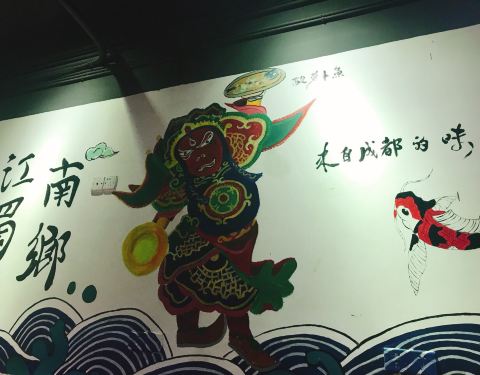 江南
蜀鄉
酸萝卜鱼
来自成都的味